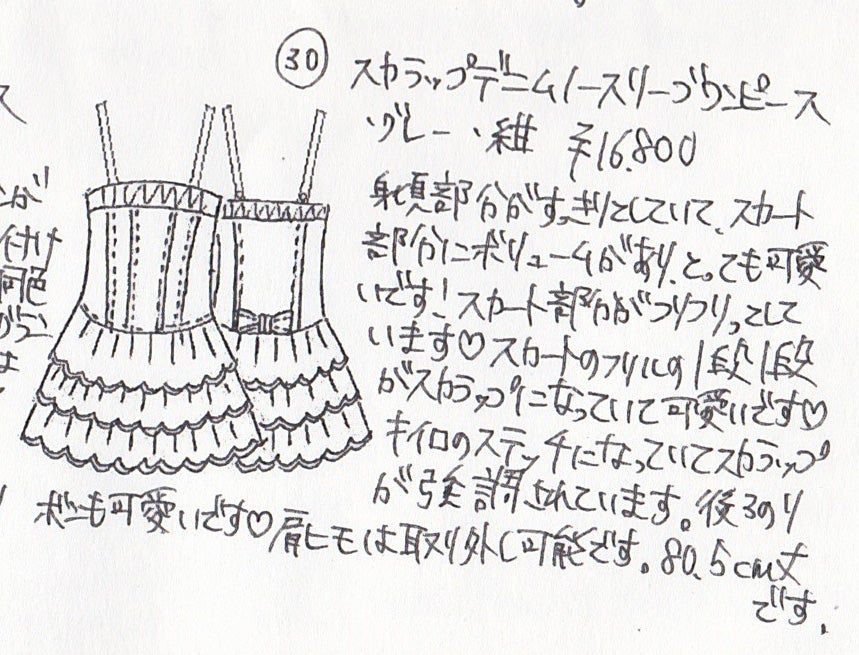 30
スカラップデニムノースリーブワンピース
グレー、紺 ¥16.800
身頃部分がすっきりとしていて、スカート
部分にボリュームがあり、とっても可愛
いです!スカート部分がフリフリっとして
います♡スカートのフリルの1段1段
がスカラップになっていて可愛いです♡
キイロのステッチになっていてスカラップ
が強調されています。後ろのリ
ボンも可愛いです♡肩ヒモは取り外し可能です。80.5cm丈
です。
付け
同色